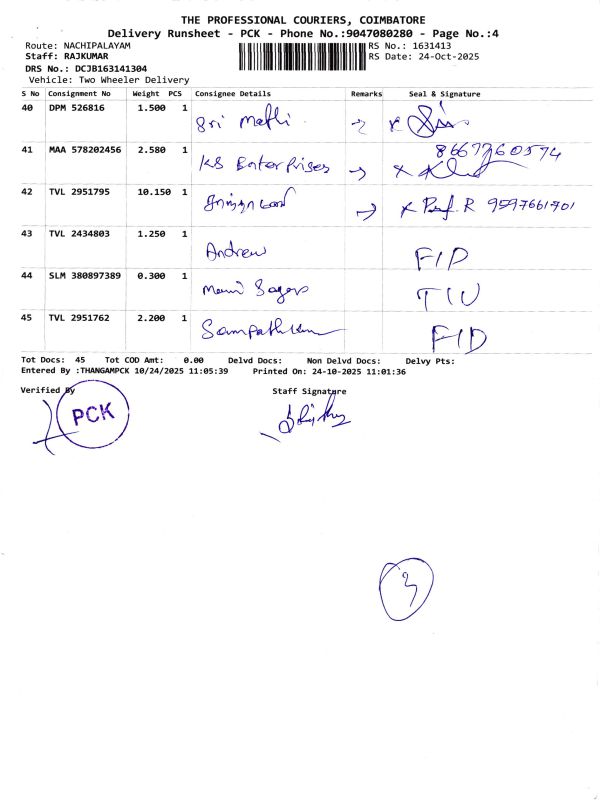 THE PROFESSIONAL COURIERS, COIMBATORE
Delivery Runsheet - PCK - Phone No.:9047080280 - Page No.:4
Route: NACHIPALAYAM
RS No.: 1631413
Staff: RAJKUMAR
RS Date: 24-Oct-2025
DRS No.: DCJB163141304
Vehicle: Two Wheeler Delivery
S No Consignment No Weight PCS Consignee Details Remarks Seal & Signature
40 DPM 526816 1.500 1 Sri Mathi
41 MAA 578202456 2.580 1 KS Enterprises 8667760574
42 TVL 2951795 10.150 1 R 9597661701
43 TVL 2434803 1.250 1 Andrew F/D
44 SLM 380897389 0.300 1 Mani
45 TVL 2951762 2.200 1 F/D
Tot Docs: 45 Tot COD Amt: 0.00 Delvd Docs: Non Delvd Docs: Delvy Pts:
Entered By :THANGAMPCK 10/24/2025 11:05:39 Printed On: 24-10-2025 11:01:36
Verified By
Staff Signature
PCK
3